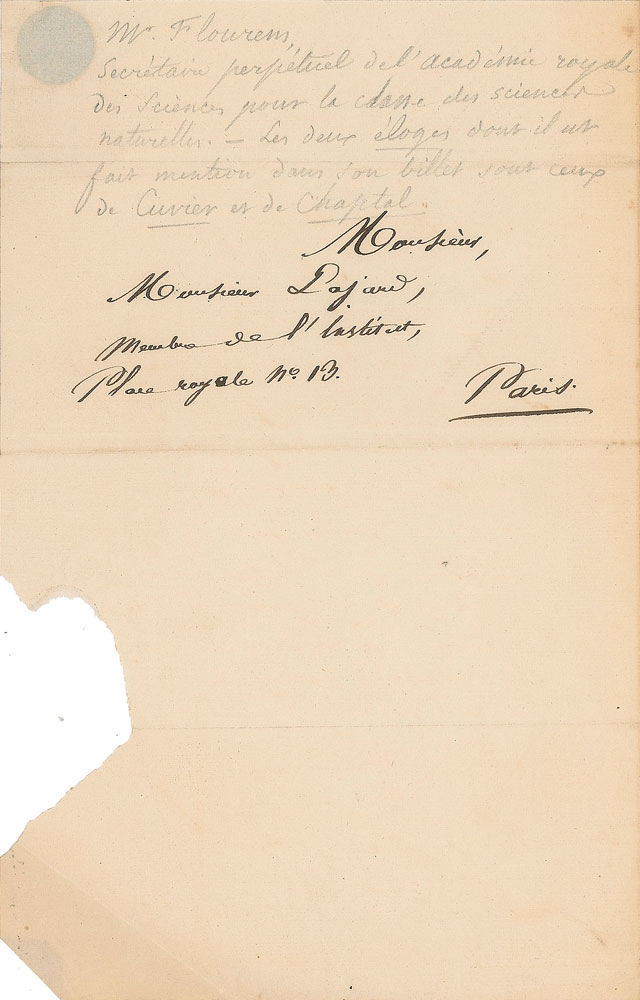 Mr. Flourens,
Secrétaire perpétuel de l'académie royale
des Sciences pour la classe des sciences
naturelles. — Les deux éloges dont il est
fait mention dans son billet sont ceux
de Cuvier et de Chaptal.
Monsieur,
Monsieur Lajard,
Membre de l'Institut,
Place royale No. 13.
Paris.